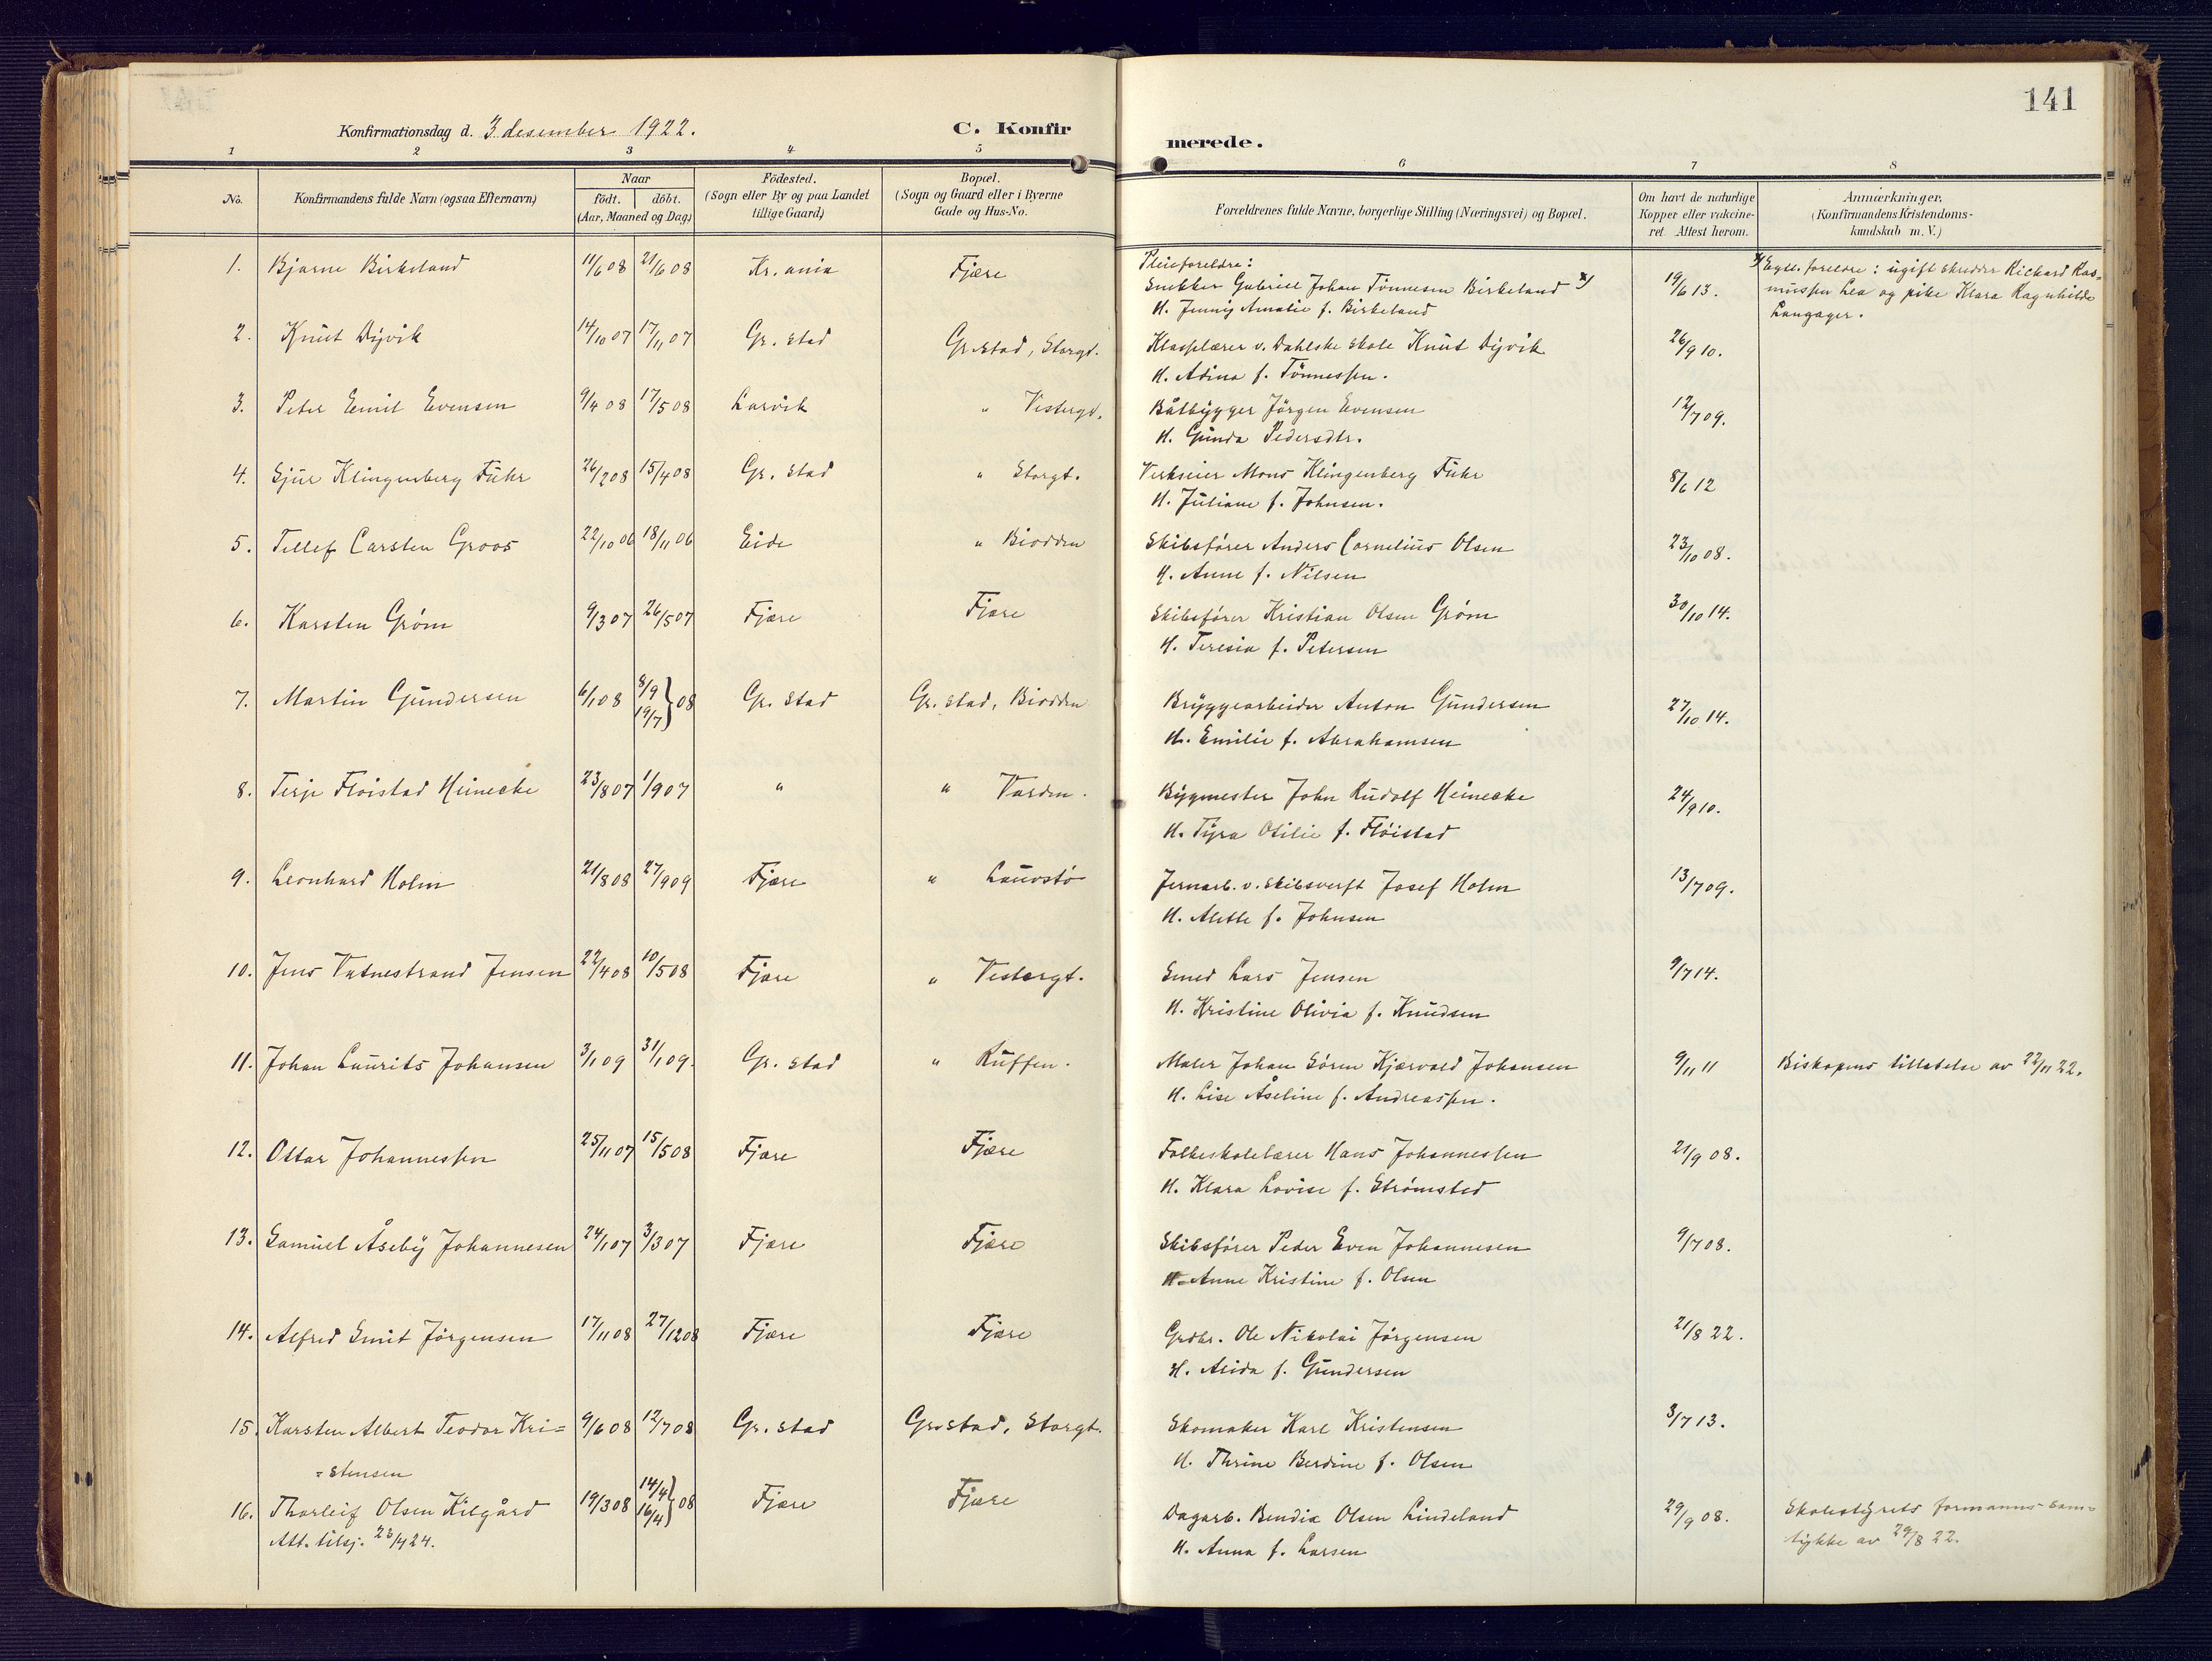 141
Konfirmationsdag d. 3 desember 1922. C. Konfirmerede.
1 2 3 4 5 6 7 8
No. Konfirmandens fulde Navn (ogsaa Efternavn) Naar födt. döbt. (Aar, Maaned og Dag) Födested. (Sogn eller By og paa Landet tillige Gaard) Bopæl. (Sogn og Gaard eller i Byerne Gade og Hus-No. Forældrenes fulde Navne, borgerlige Stilling (Næringsvei) og Bopæl. Om havt de naturlige Kopper eller vakcineret Attest herom. Anmærkninger. (Konfirmandens Kristendomskundskab m. V.)
Pleieforeldre:
1. Bjarne Birkeland 11/6 08 21/6 08 Kr.ania Fjære Snekker Gabriel Johan Tönnesen Birkeland x) 19/6 13. x) Egtl. foreldre: ugift skredder Richard Ras-
H. Jenny Amalie f. Birkeland mussen Lea og pike Klara Ragnhilde
Langager.
2. Knut Dyvik 14/10 07 17/11 07 Gr. stad Gr.stad, Storgt. Klasselærer v. Dahlske skole Knut Dyvik 26/9 10.
H. Adina f. Tönnessen.
3. Peter Emil Evensen 9/4 08 17/5 08 Larvik " Vestergt. Båtbygger Jörgen Evensen 12/7 09.
H. Gunda Pedersdtr.
4. Sjur Klingenberg Fuhr 26/2 08 15/4 08 Gr. stad " Storgt. Verkseier Mons Klingenberg Fuhr 8/6 12
H. Juliane f. Johnsen.
5. Tellef Carsten Groos 22/10 06 18/11 06 Eide " Biodden Skibsförer Anders Cornelius Olsen 23/10 08.
H. Anne f. Nilsen
6. Karsten Grøm 9/3 07 26/5 07 Fjære Fjære Skibsförer Kristian Olsen Grøm 30/10 14.
H. Teresia f. Petersen
7. Martin Gundersen 6/1 08 8/9 19/7 } 08 Gr. stad Gr. stad, Biodden Bryggearbeider Anton Gundersen 27/10 14.
H. Emilie f. Abrahamsen
8. Terje Flöistad Heinecke 23/8 07 1/9 07 " " Varden. Bygmester John Rudolf Heinecke 24/9 10.
H. Tyra Otilie f. Flöistad
9. Leonhard Holm 21/8 08 27/9 09 Fjære " Lauvstö Jernarb. v. skibsverft Josef Holm 13/7 09.
H. Alette f. Johnsen
10. Jens Vatnestrand Jensen 22/4 08 10/5 08 Fjære " Vestergt. Smed Lars Jensen 9/7 14.
H. Kristine Olivia f. Knudsen
11. Johan Laurits Johansen 3/1 09 31/1 09. Gr. stad " Kuffen. Maler Johan Sören Kjærvold Johansen 9/11 11 Biskopens tillatelse av 22/11 22.
H. Lise Åseline f. Andreassen.
12. Ottar Johannessen 25/11 07 15/5 08 Fjære Fjære Folkeskolelærer Hans Johannessen 21/9 08.
H. Klara Lovise f. Strömsted
13. Samuel Åseby Johannesen 24/1 07 3/3 07 Fjære Fjære Skibsförer Peder Even Johannesen 9/7 08.
H. Anne Kristine f. Olsen
14. Alfred Smit Jörgensen 17/11 08 27/12 08 Fjære Fjære Grdbr. Ole Nikolai Jörgensen 21/8 22.
H. Alida f. Gundersen
15. Karsten Albert Teodor Kri= 9/6 08 12/7 08 Gr. stad Gr.stad, Storgt. Skomaker Karl Kristensen 3/7 13.
=stensen H. Thrine Berdine f. Olsen
16. Thorleif Olsen Kilgård 19/3 08 14/4 16/4 } 08 Fjære Fjære Dagarb. Bendix Olsen Lindeland 29/9 08. Skolestyrets formanns sam=
Att. tilsj. 23/4 24. H. Anna f. Larsen tykke av 29/8 22.